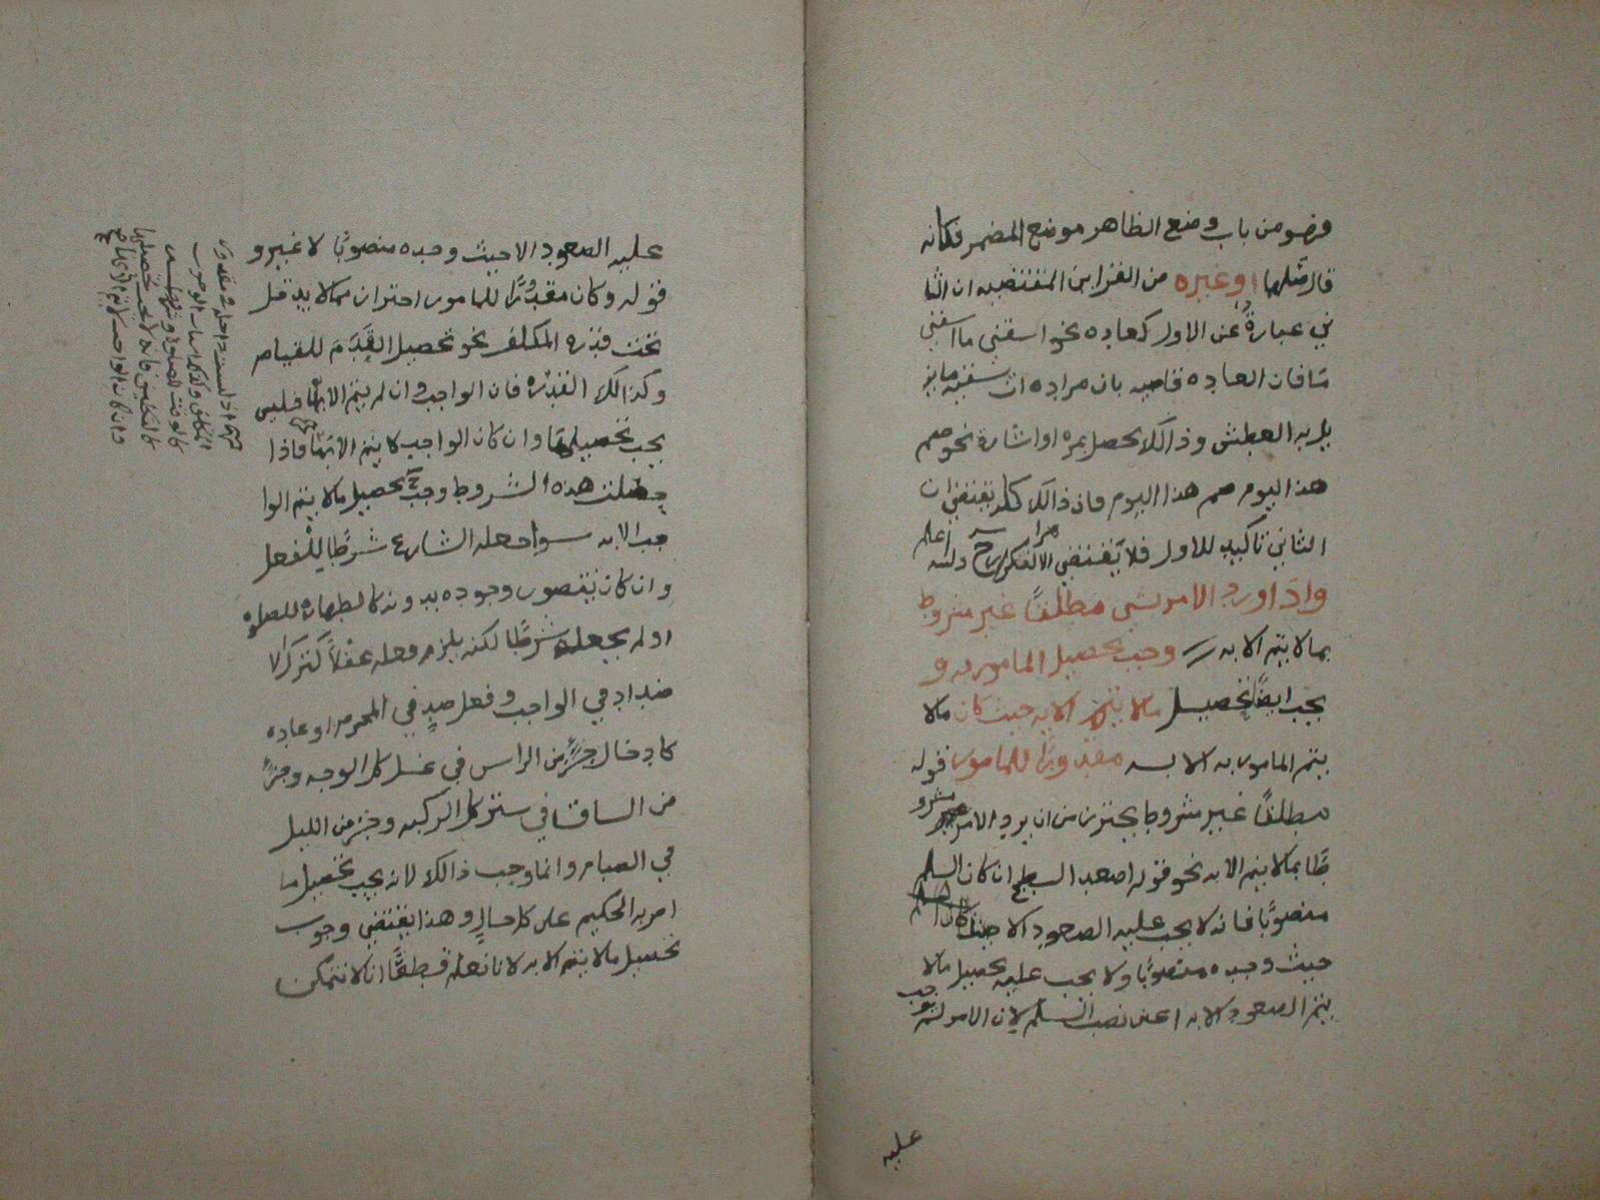 فهو من باب وضع الظاهر موضع المضمر فكانه
قال مثلها او غيره من القراين المقتضيه ان الثا
ني عبارة عن الاول كعاده نحو اسقني ما اسقني
ما فان العاده قاضيه بان مراده ان
يل به العطش وذالك يحصل بمره او اشارة نحو صم
هذا اليوم صم هذا اليوم فان ذالك كله يقتضي ان
الثاني تاكيد للاول فلا يقتضي الا والله اعلم
واذا ورد الامر بشي مطلقًا غير مشروط
بما لا يتم الا به وجب تحصيل المامور به و
يجب ايضًا تحصيل ما لا يتم الا به حيث كان ما لا
يتم المامور به الا به مقدورًا للمامور قوله
مطلقًا غير مشروط يحترز من ان يرد الامر مشرو
طًا بما لا يتم الا به نحو قوله اصعد السطح ان كان السلم
منصوبًا فانه لا يجب عليه الصعود الا حيث كان
حيث وجده منصوبًا ولا يجب عليه تحصيل ما لا
يتم الصعود الا به اعني نصب السلم لان الامر لم يوجب
عليه
عليه الصعود الا حيث وجده منصوبًا لا غير و
قوله وكان مقدورًا للمامور احتراز مما لا يدخل
تحت قدرة المكلف نحو تحصيل القدم للقيام
وكذالك القدرة فان الواجب وان لم يتم الا بها فليس
يجب تحصيلها وان كان الواجب لا يتم الا بها فاذا
حصلت هذه الشروط وجب تحصيل ما لا يتم الوا
جب الا به سوا جعله الشارع شرطًا للفعل
وان كان يتصور وجوده بدونه كالطهارة للصلوة
او لم يجعله شرطًا لكنه يلزم فعله عقلاً كترك الا
ضداد في الواجب وفعل ضدٍ في المحرم او عاده
كادخال جزءٍ من الراس في غسل كل الوجه وجزءٍ
من الساق في ستر كل الركبه وجزءٍ من الليل
في الصيام وانما وجب ذالك لانه يجب تحصيل ما
امر به الحكيم على كل حال وهذا يقتضي وجوب
تحصيل ما لا يتم الا به لانا نعلم قطعًا انا لا نتمكن